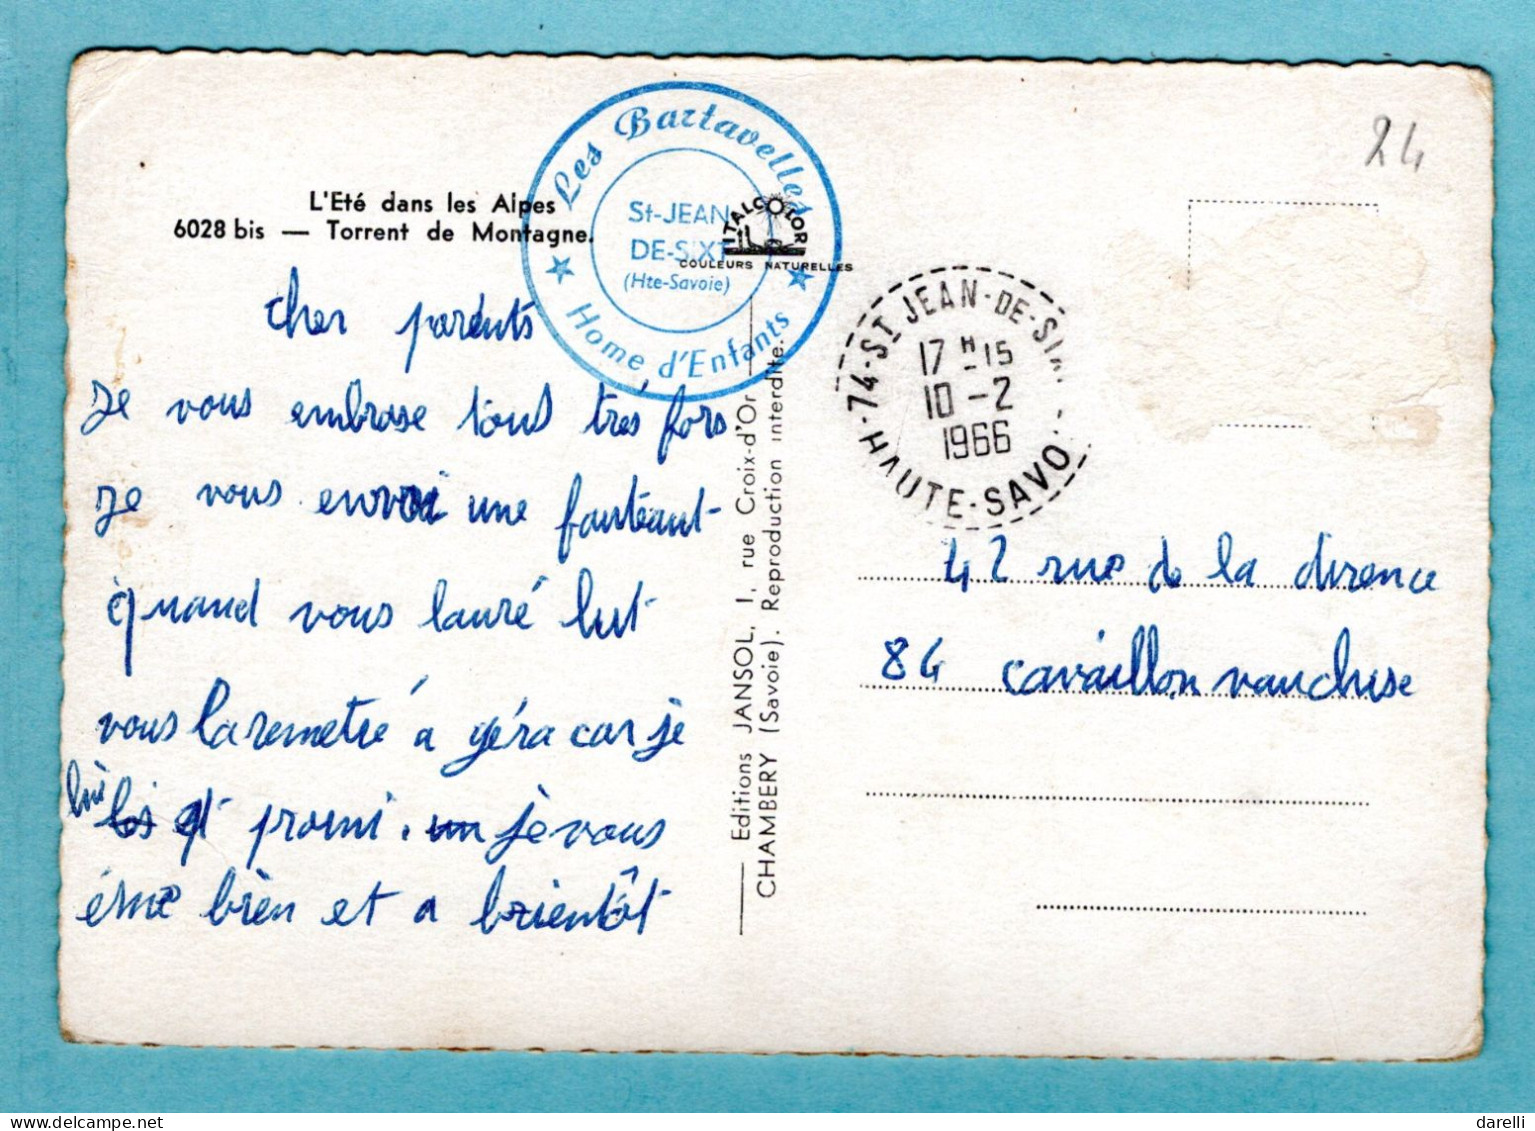 L'Eté dans les Alpes
6028 bis — Torrent de Montagne.
Les Bartavelles
St-JEAN
DE-SIXT
(Hte-Savoie)
Home d'Enfants
ITALCOLOR
COULEURS NATURELLES
74-ST JEAN-DE-SI
17 H 15
10-2
1966
HAUTE-SAVO
24
cher parents
Je vous embrase tous trés fors
Je vous envoi une
quand vous lauré lut
vous laremetré á géra car je
lui
promi. un je vous
éme bièn et a bientôt
Editions JANSOL, 1, rue Croix-d'Or
CHAMBERY (Savoie). Reproduction interdite.
42 rue de la durence
84 cavaillon vaucluse
darelli